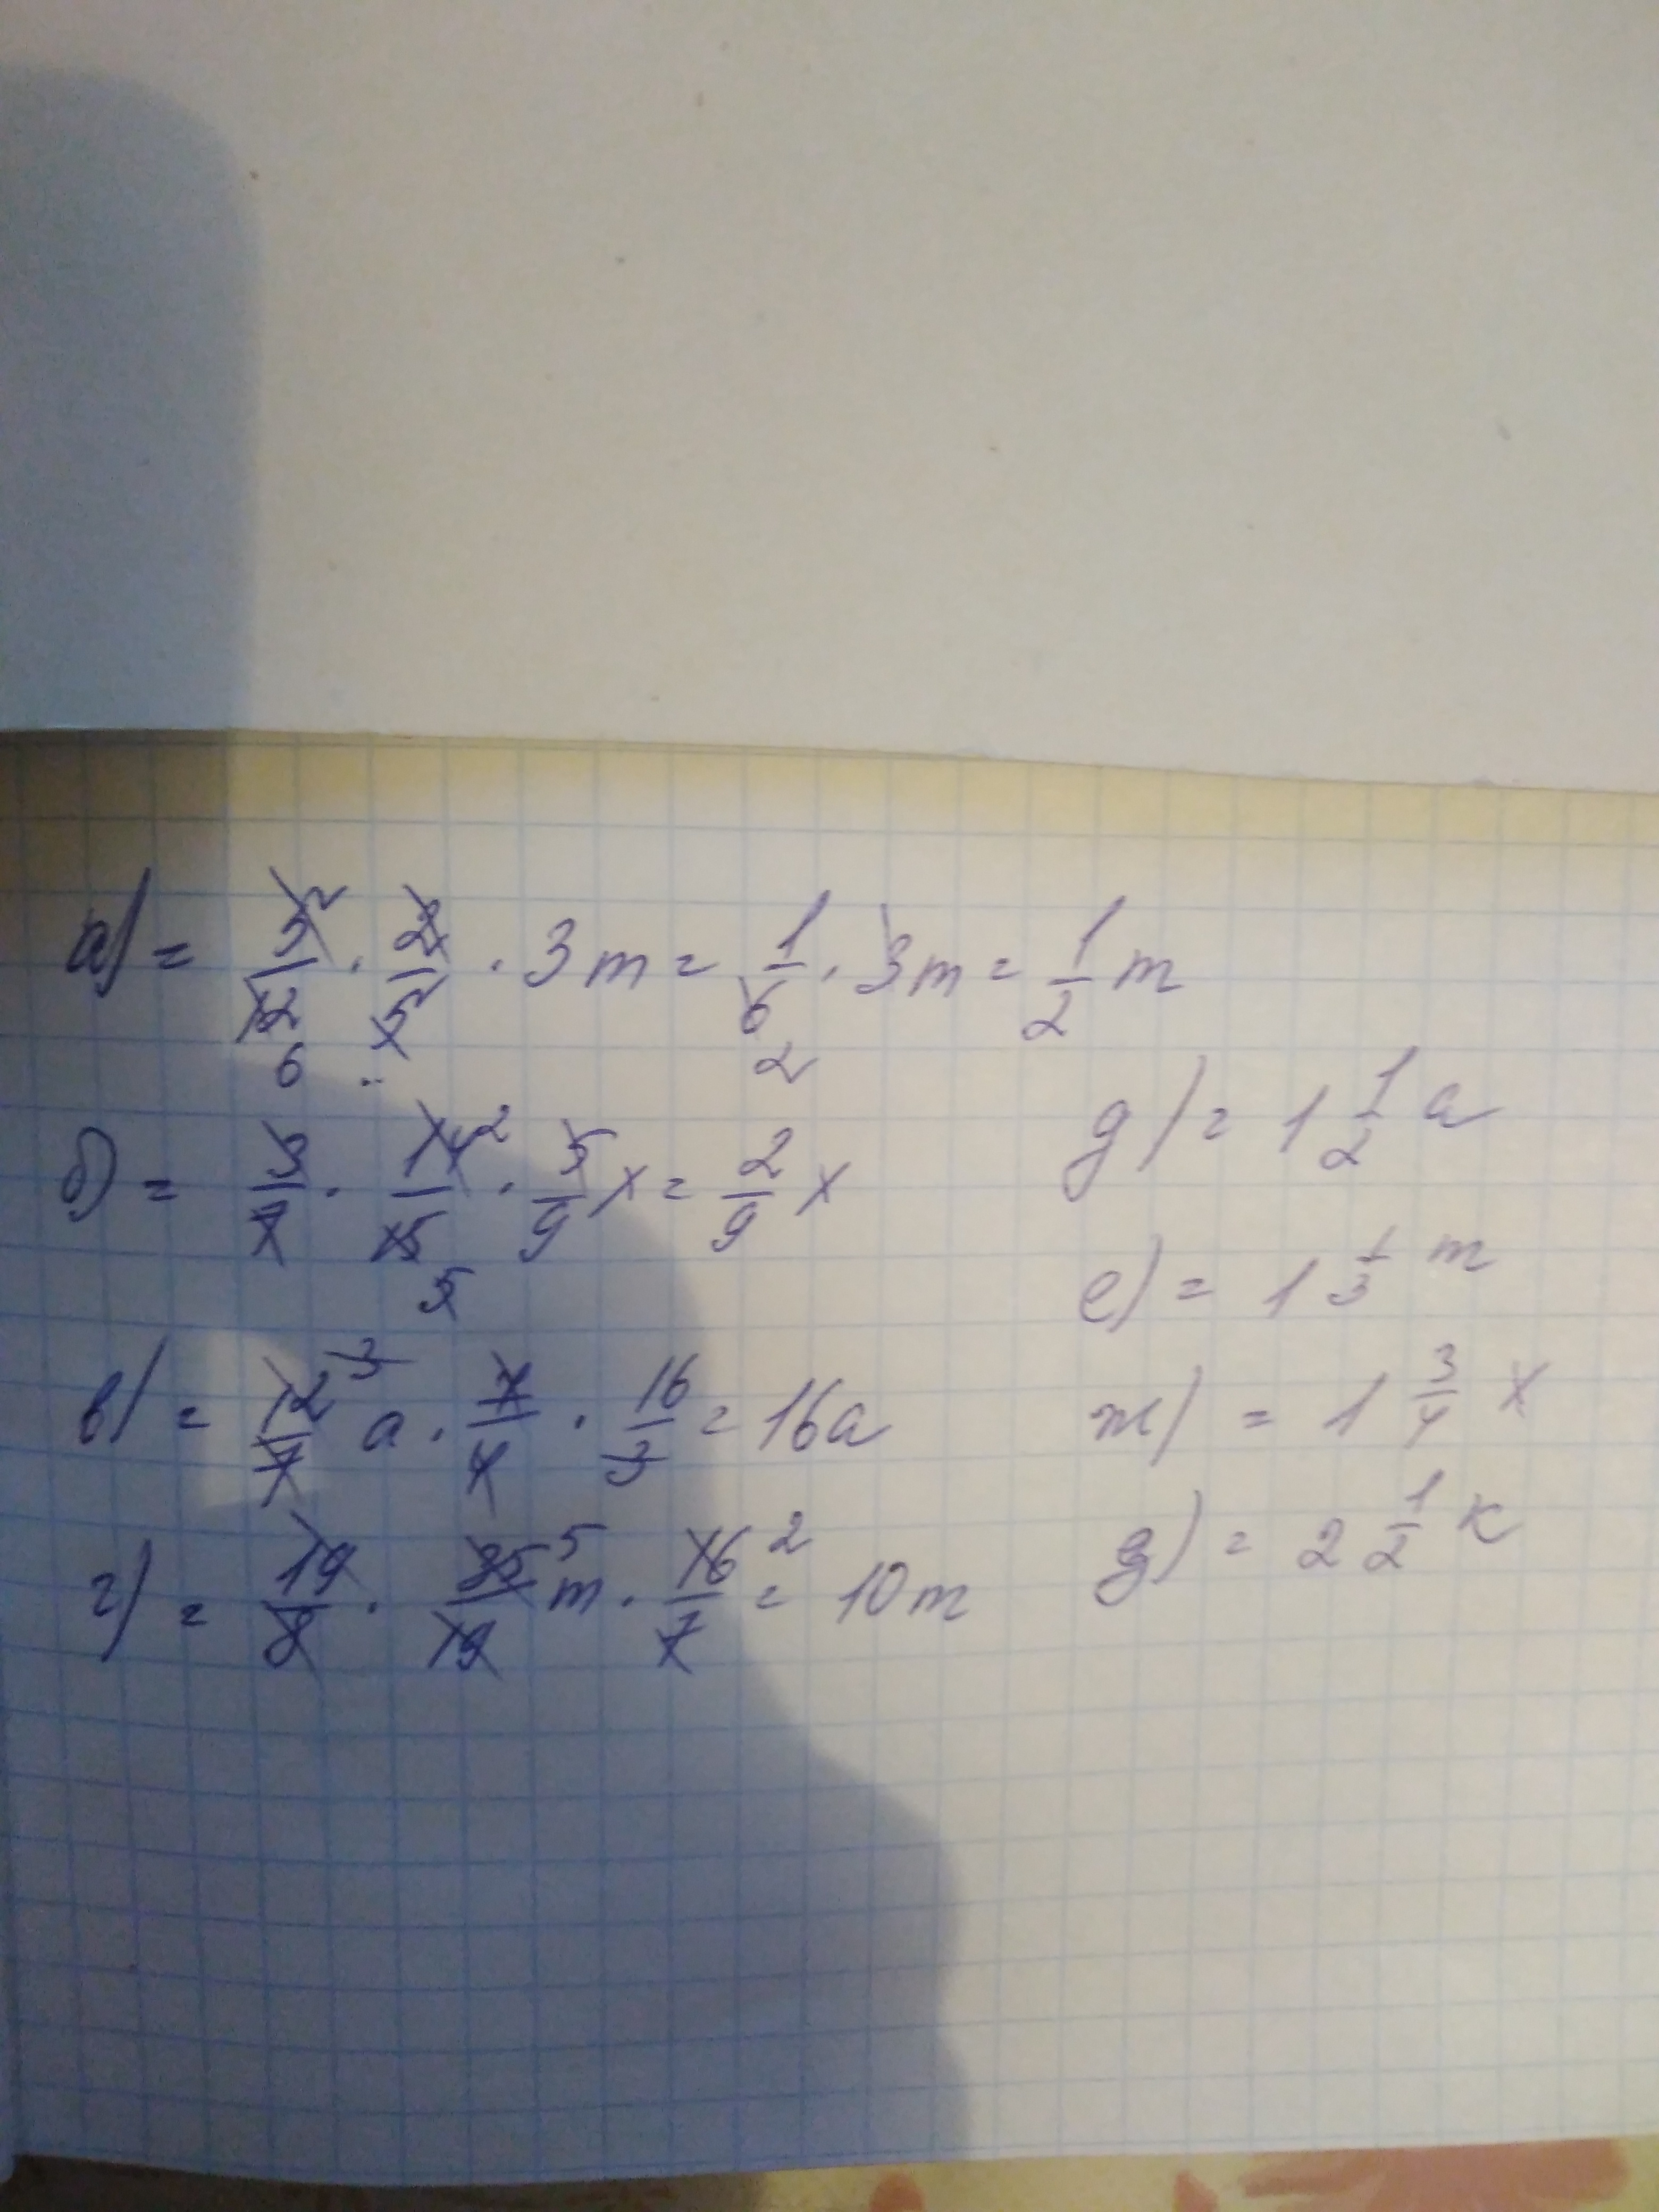 а) = 5/12 · 2/5 · 3m = 1/6 · 3m = 1/2 m
6 2
б) = 3/7 · 14/15 · 5/9 x = 2/9 x
2
5
в) = 12/7 a · 7/4 · 16/3 = 16a
3
г) = 19/8 · 35/19 m · 16/7 = 10m
5 2
д) = 1 1/2 a
е) = 1 1/3 m
ж) = 1 3/4 x
з) = 2 1/2 к